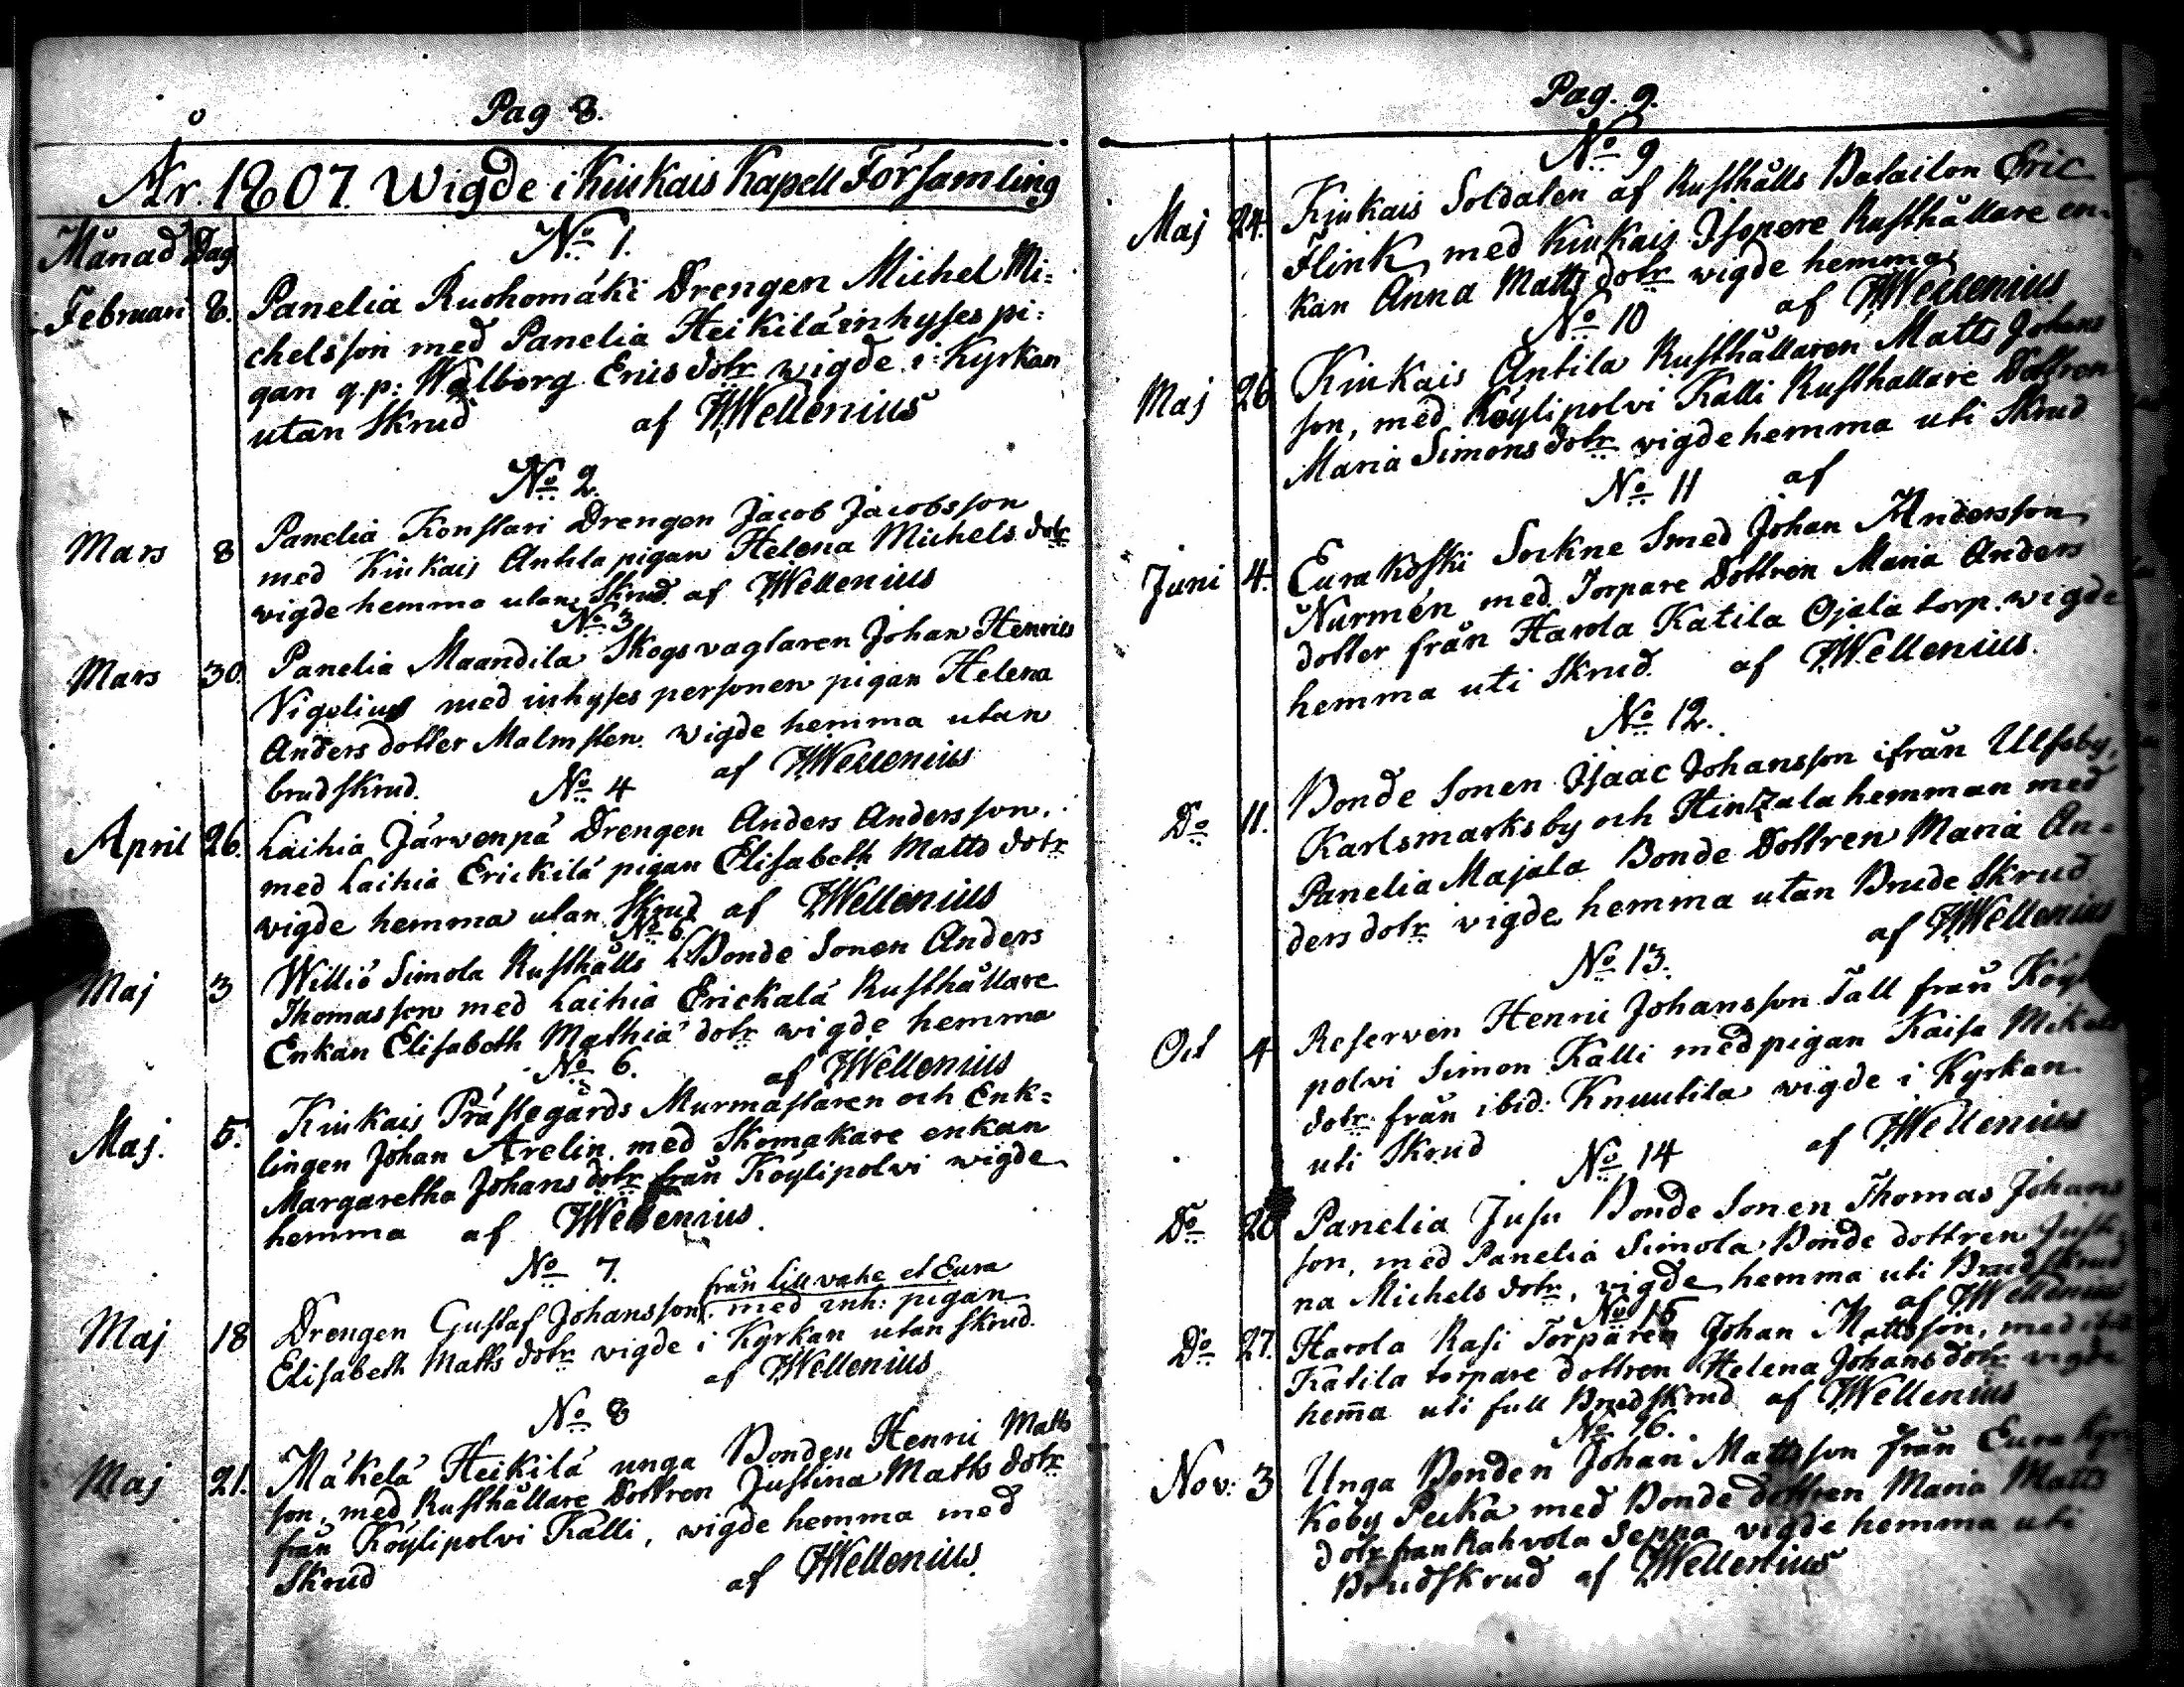 Pag 8.
År. 1807. Wigde i Kiukais Kapell Församling
Månad Dag
No 1.
Februari 8. Panelia Ruohomäki Drengen Michel Mi:
chelsson med Panelia Heikilä inhyses pi:
gan q.p: Walborg Erics dotr wigde i Kyrkan
utan Skrud af HWellenius
No 2.
Mars 8 Panelia Konstari Drengen Jacob Jacobsson
med Kiukais Anttla pigan Helena Michels dotr
vigde hemma utan Skrud. af HWellenius
No 3
Mars 30. Panelia Maandila Skogsvagtaren Johan Henrics
Vigelius med inhyses personen pigan Helena
Anders dotter Malmsten. wigde hemma utan
brudskrud. af HWellenius
No 4
April 26. Laihia Järvenpä Drengen Anders Andersson.
med Laihia Erickilä pigan Elisabeth Matts dotr
vigde hemma utan Skrud af HWellenius
Maj 3 Williö Simola Rusthålls Bonde Sonen Anders
Thomasson med Laihia Erickalä Rusthållare
Enkan Elisabeth Mathia dotr wigde hemma
No 6. af HWellenius
Maj. 5. Kiukais Prästegårds Murmästaren och Enk=
lingen Johan Arelin. med Skomakare enkan
Margaretha Johans dotr från Köylipolvi wigde
hemma af HWellenius.
No 7.
från Lillvahe et Eura
Maj 18 Drengen Gustaf Johansson. med inh: pigan
Elisabeth Matts dotr vigde i Kyrkan utan skrud.
af HWellenius
No 8
Maj 21. Mäkelä Heikilä unga Bonden Henric Matts
son, med Rusthållare Dottren Justina Matts dotr
från Köylipolvi Kalli, wigde hemma med
Skrud af HWellenius.
Pag. 9.
No 9
Maj 24. Kiukais Soldaten af Rusthålls Batailon Eric
Flink med Kiukais Isopere Rusthållare en-
kan Anna Matts dotr wigde hemma
No 10 af HWellenius
Maj 26 Kiukais Antila Rusthållaren Matts Johans
son, med Köylipolvi Kalli Rusthållare Dottren
Maria Simons dotr vigde hemma uti Skrud
No 11 af
Juni 4. Eura Koski Sockne Smed Johan Andersson
Nurmén med Torpare Dottren Maria Anders
dotter från Harola Katila Ojala torp. wigde
hemma uti Skrud. af HWellenius.
No 12.
Do 11. Bonde Sonen Isaac Johansson ifrån Ulfsby,
Karlsmarks by och Hintzala hemman med
Panelia Majala Bonde Dottren Maria An=
ders dotr vigde hemma utan Brude Skrud
af HWellenius
No 13.
Oct 4 Reserven Henric Johansson Tall från
polvi Simon Kalli med pigan Kaisa Mikels
dotr från ibid: Knuutila wigde i Kyrkan
uti Skrud af HWellenius
No 14
Do 20 Panelia Jusu Bonde Sonen Thomas Johans
son, med Panelia Simola Bonde dottren Justi
na Michels dotr, vigde hemma uti Brudskrud
No 15 af HWellenius
Do 27. Harola Rasi Torparen Johan Mattsson, med
Katila torpare dottren Helena Johans dotr vigde
hem̅a uti full Brudskrud af HWellenius
No 16.
Nov: 3 Unga Bonden Johan Mattsson från Eura
Koby Pecka med Bonde dottren Maria Matts
dotr från Kahvola Seppa vigde hemma uti
Brudskrud af HWellenius